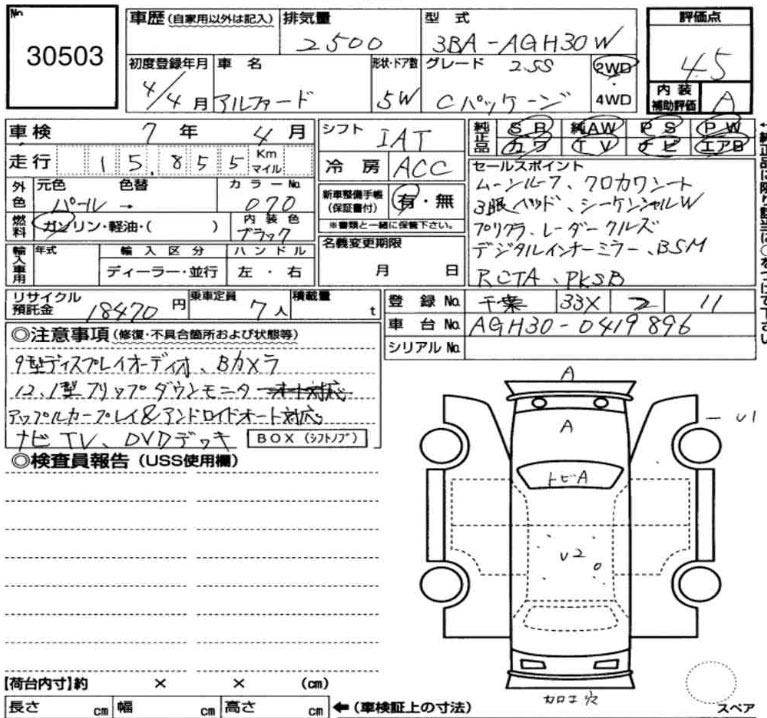 No.
30503
車歴(自家用以外は記入)
排気量
2500
型式
3BA-AGH30W
評価点
4.5
初度登録年月
4/4月
車名
アルファード
形状・ドア数
5W
グレード
2.5S
Cパッケージ
2WD
・
4WD
内装
補助評価
A
車検 7年 4月
シフト
IAT
純正品
SR 純AW PS PW
カワ TV ナビ エアB
走行 15,855 Km
マイル
冷房
ACC
外色
元色 色替
パール →
カラーNo.
070
新車整備手帳
(保証書付)
有・無
※書類と一緒に保管下さい。
燃料
ガソリン・軽油・( )
内装色
ブラック
輸入車用
年式
輸入区分
ディーラー・並行
ハンドル
左・右
名義変更期限
月 日
セールスポイント
ムーンルーフ、クロカワシート
3眼ヘッド、シーケンシャルW
プリクラ、レーダークルズ
デジタルインナーミラー、BSM
RCTA、PKSB
リサイクル
預託金
18470円
乗車定員
7人
積載量
t
登録No.
千葉 33X 11
車台No.
AGH30-0419896
シリアルNo.
◎注意事項(修復・不具合箇所および状態等)
9型ディスプレイオーディオ、Bカメラ
12.1型フリップダウンモニタ
アップルカープレイ&アンドロイドオート対応
ナビTV、DVDデッキ
BOX(シフトノブ)
◎検査員報告(USS使用欄)
A
A
U1
トビA
U2
カロエ穴
スペア
【荷台内寸】約 × × (cm)
長さ cm 幅 cm 高さ cm
←(車検証上の寸法)
←純正品に限り該当に○をつけて下さい